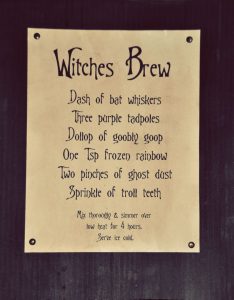 Witches Brew
Dash of bat whiskers
Three purple tadpoles
Dollop of goobly goop
One Tsp frozen rainbow
Two pinches of ghost dust
Sprinkle of troll teeth
Mix thoroughly & simmer over
low heat for 4 hours.
Serve ice cold.